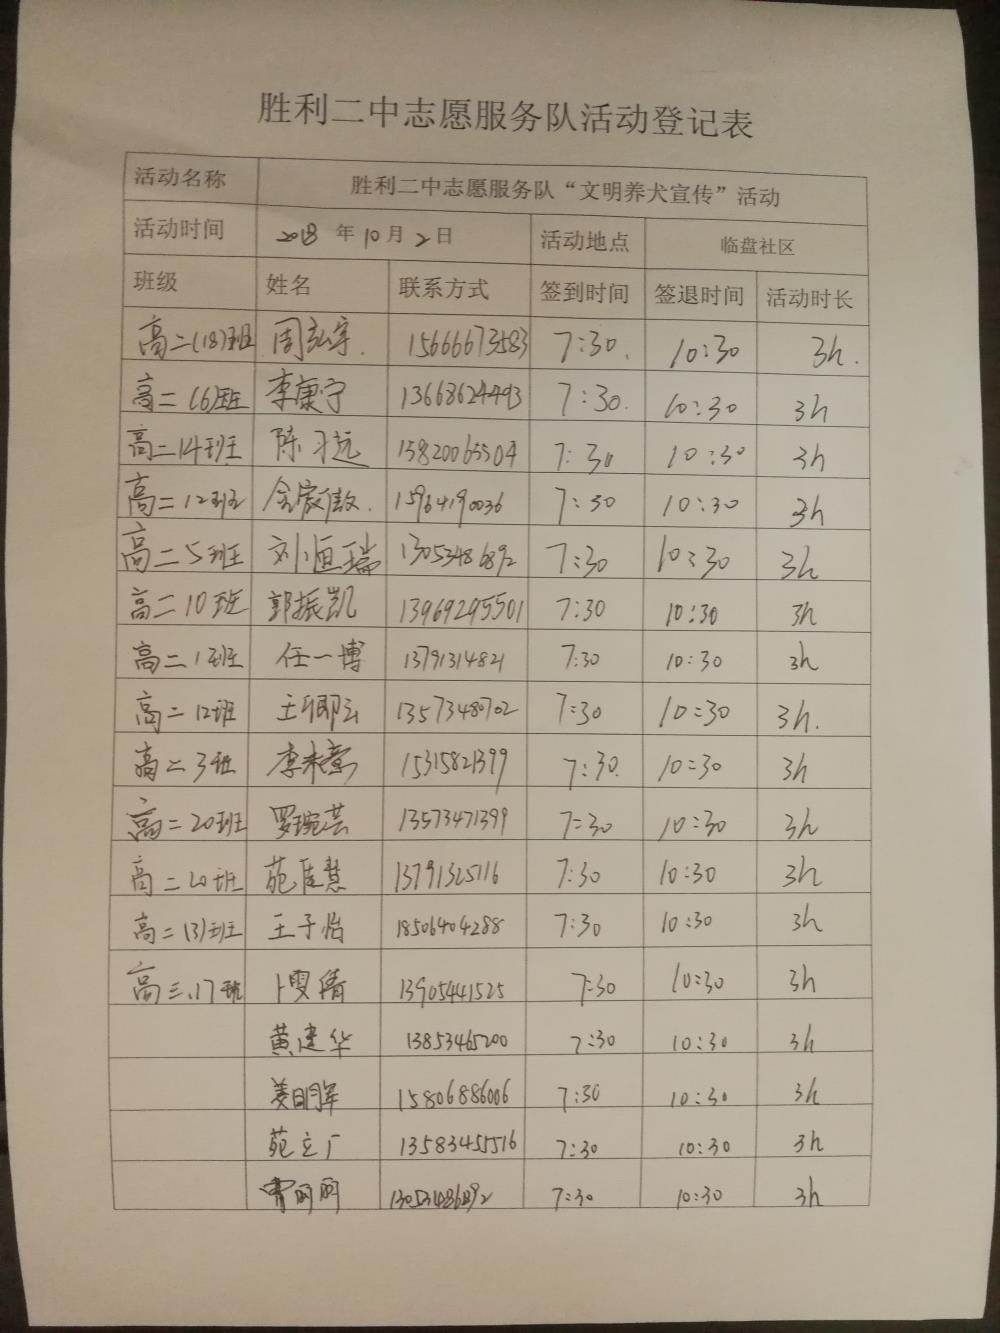 胜利二中志愿服务队活动登记表
活动名称 胜利二中志愿服务队“文明养犬宣传”活动
活动时间 2018 年 10 月 2 日 活动地点 临盘社区
班级 姓名 联系方式 签到时间 签退时间 活动时长
高二(18)班 周弘宇. 15666673583 7:30. 10:30 3h.
高二(6)班 李康宁 13668624493 7:30. 10:30 3h
高二14班 陈才远 15820065504 7:30 10:30 3h
高二12班 15964190036 7:30 10:30 3h
高二5班 刘恒瑞 13053486892 7:30 10:30 3h
高二10班 郭振凯 13969295501 7:30 10:30 3h
高二1班 任一博 13791314821 7:30 10:30 3h
高二12班 王卿云 13573480702 7:30 10:30 3h.
高二3班 李未 15315821399 7:30. 10:30 3h
高二20班 罗琬芸 13573471399 7:30 10:30 3h
高二20班 苑佳慧 13791325116 7:30 10:30 3h
高二13)班 王子怡 18506404288 7:30 10:30 3h
高三.17班 卜雯倩 13905441525 7:30 10:30 3h
黄建华 13853465200 7:30 10:30 3h
姜明军 15806886006 7:30 10:30 3h
苑立广 13583455516 7:30 10:30 3h
曹丽丽 13053486892 7:30 10:30 3h